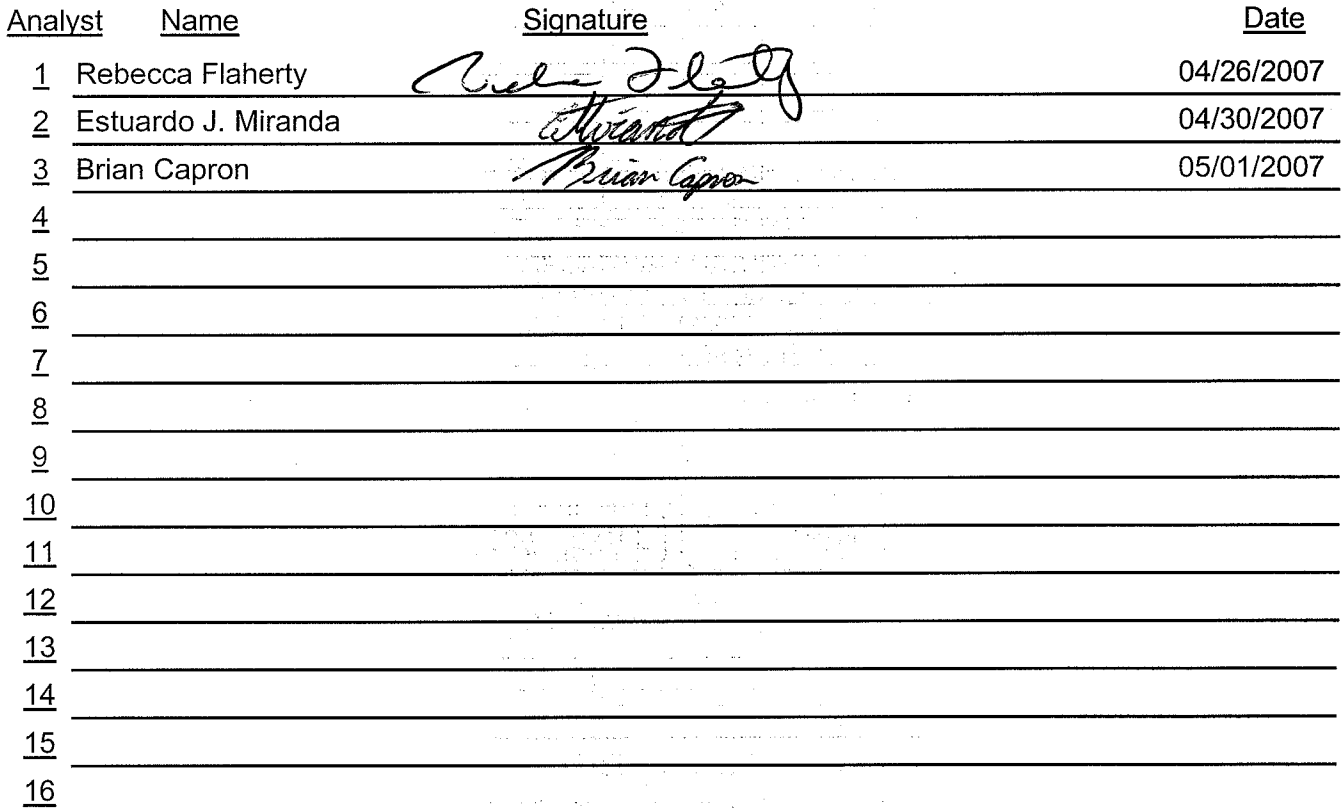 Analyst Name Signature Date
1 Rebecca Flaherty 04/26/2007
2 Estuardo J. Miranda EMiranda 04/30/2007
3 Brian Capron Brian Capron 05/01/2007
4
5
6
7
8
9
10
11
12
13
14
15
16